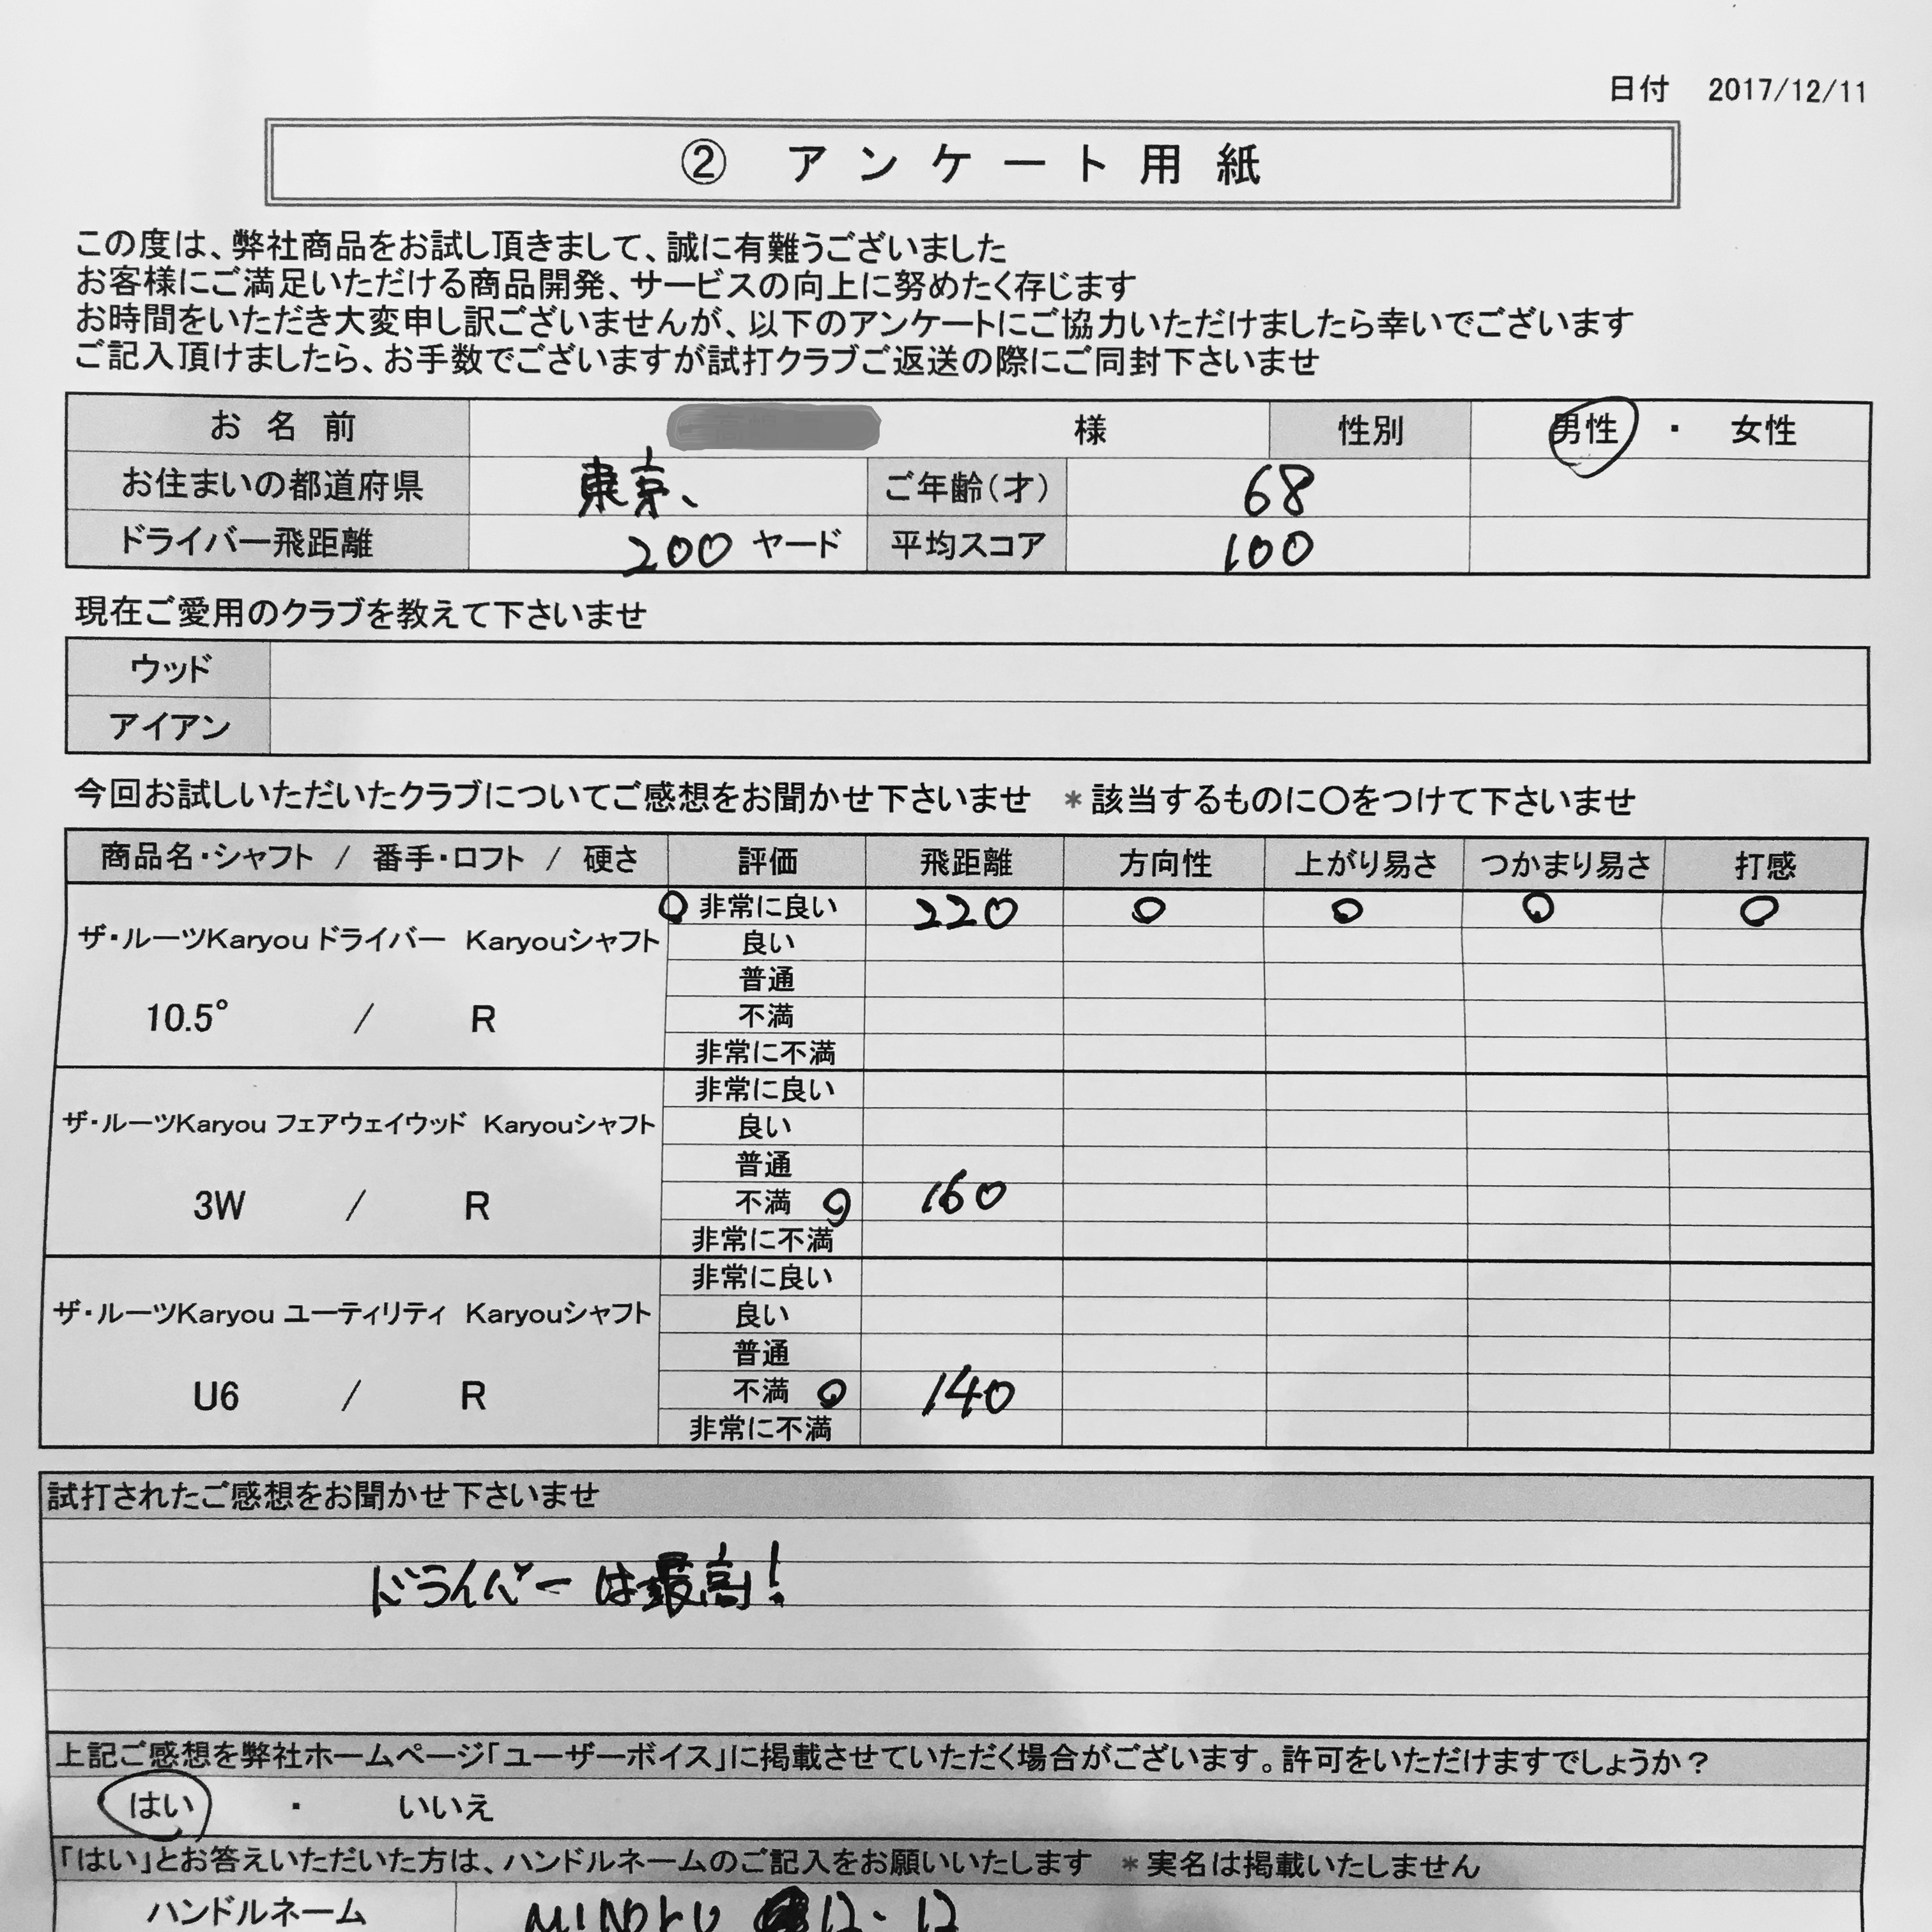 日付 2017/12/11
② アンケート用紙
この度は、弊社商品をお試し頂きまして、誠に有難うございました
お客様にご満足いただける商品開発、サービスの向上に努めたく存じます
お時間をいただき大変申し訳ございませんが、以下のアンケートにご協力いただけましたら幸いでございます
ご記入頂けましたら、お手数でございますが試打クラブご返送の際にご同封下さいませ
お名前 様 性別 男性 ・ 女性
お住まいの都道府県 東京、 ご年齢(才) 68
ドライバー飛距離 200 ヤード 平均スコア 100
現在ご愛用のクラブを教えて下さいませ
ウッド
アイアン
今回お試しいただいたクラブについてご感想をお聞かせ下さいませ *該当するものに〇をつけて下さいませ
商品名・シャフト / 番手・ロフト / 硬さ 評価 飛距離 方向性 上がり易さ つかまり易さ 打感
ザ・ルーツKaryou ドライバー Karyouシャフト
10.5° / R
〇 非常に良い 220 〇 〇 〇 〇
良い
普通
不満
非常に不満
ザ・ルーツKaryou フェアウェイウッド Karyouシャフト
3W / R
非常に良い
良い
普通
不満 〇 160
非常に不満
ザ・ルーツKaryou ユーティリティ Karyouシャフト
U6 / R
非常に良い
良い
普通
不満 〇 140
非常に不満
試打されたご感想をお聞かせ下さいませ
ドライバーは最高!
上記ご感想を弊社ホームページ「ユーザーボイス」に掲載させていただく場合がございます。許可をいただけますでしょうか?
はい ・ いいえ
「はい」とお答えいただいた方は、ハンドルネームのご記入をお願いいたします *実名は掲載いたしません
ハンドルネーム MINORU 12.12